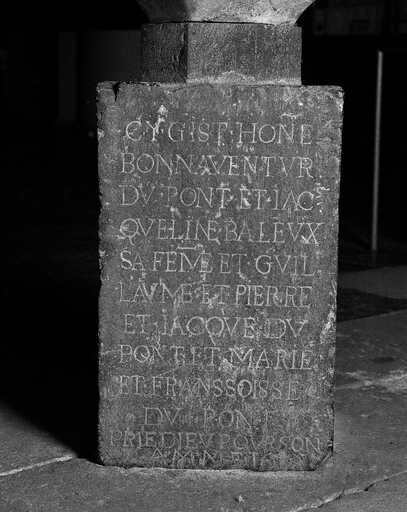 CY·GIST·HONE
BONNAVENTVR
DV·PONT·ET·IAC
QVELINE·BALEVX
SA FEME ET·GVIL
LAVME·ET·PIERRE
ET·IACQVE·DV
PONT·ET·MARIE
ET·FRANSSOISSE
DV PONT
PRIEDIEV POVR SON